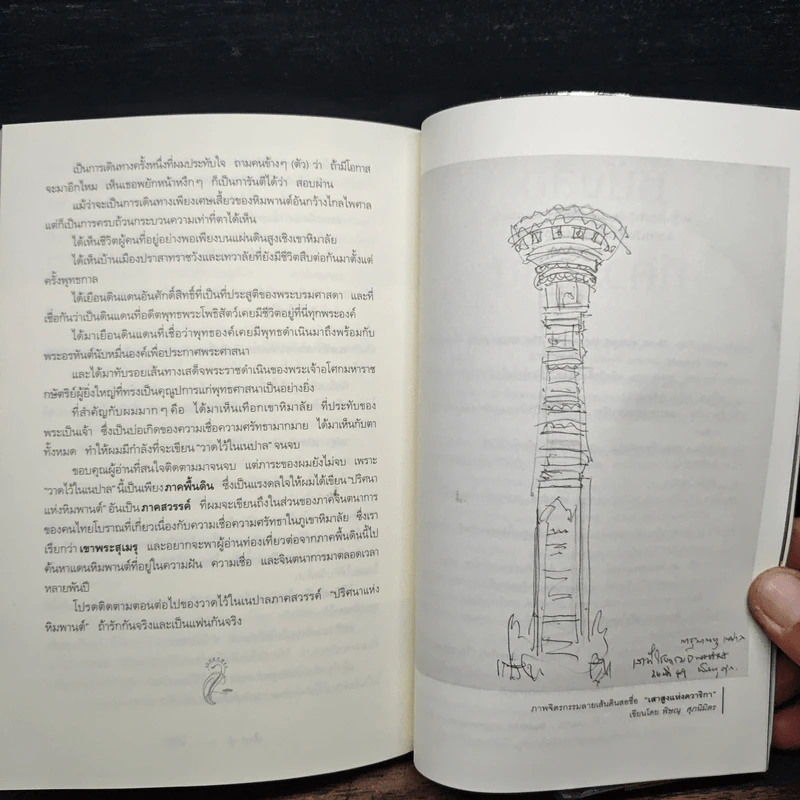 เป็นการเดินทางครั้งหนึ่งที่ผมประทับใจ ถามคนข้างๆ (ตัว) ว่า ถ้ามีโอกาส
จะมาอีกไหม เห็นเธอพยักหน้าหงึกๆ ก็เป็นการันตีได้ว่า สอบผ่าน
แม้ว่าจะเป็นการเดินทางเพียงเศษเสี้ยวของหิมพานต์อันกว้างไกลไพศาล
แต่ก็เป็นการครบถ้วนกระบวนความเท่าที่ตาได้เห็น
ได้เห็นชีวิตผู้คนที่อยู่อย่างพอเพียงบนแผ่นดินสูงเชิงเขาหิมาลัย
ได้เห็นบ้านเมืองปราสาทราชวังและเทวาลัยที่ยังมีชีวิตสืบต่อกันมาตั้งแต่
ครั้งพุทธกาล
ได้เยือนดินแดนอันศักดิ์สิทธิ์ที่เป็นที่ประสูติของพระบรมศาสดา และที่
เชื่อกันว่าเป็นดินแดนที่อดีตพุทธพระโพธิสัตว์เคยมีชีวิตอยู่ที่นี่ทุกพระองค์
ได้มาเยือนดินแดนที่เชื่อว่าพุทธองค์เคยมีพุทธดำเนินมาถึงพร้อมกับ
พระอรหันต์นับหมื่นองค์เพื่อประกาศพระศาสนา
และได้มาทับรอยเส้นทางเสด็จพระราชดำเนินของพระเจ้าอโศกมหาราช
กษัตริย์ผู้ยิ่งใหญ่ที่ทรงเป็นคุณูปการแก่พุทธศาสนาเป็นอย่างยิ่ง
ที่สำคัญกับผมมากๆ คือ ได้มาเห็นเทือกเขาหิมาลัย ที่ประทับของ
พระเป็นเจ้า ซึ่งเป็นบ่อเกิดของความเชื่อความศรัทธามากมาย ได้มาเห็นกับตา
ทั้งหมด ทำให้ผมมีกำลังที่จะเขียน "วาดไว้ในเนปาล" จนจบ
ขอบคุณผู้อ่านที่สนใจติดตามมาจนจบ แต่ภาระของผมยังไม่จบ เพราะ
"วาดไว้ในเนปาล" นี้เป็นเพียงภาคพื้นดิน ซึ่งเป็นแรงดลใจให้ผมได้เขียน "ปริศนา
แห่งหิมพานต์" อันเป็นภาคสวรรค์ ที่ผมจะเขียนถึงในส่วนของภาคจินตนาการ
ของคนไทยโบราณที่เกี่ยวเนื่องกับความเชื่อความศรัทธาในภูเขาหิมาลัย ซึ่งเรา
เรียกว่าเขาพระสุเมรุ และอยากจะพาผู้อ่านท่องเที่ยวต่อจากภาคพื้นดินนี้ไป
ค้นหาแดนหิมพานต์ที่อยู่ในความฝัน ความเชื่อ และจินตนาการมาตลอดเวลา
หลายพันปี
โปรดติดตามตอนต่อไปของวาดไว้ในเนปาลภาคสวรรค์ "ปริศนาแห่ง
หิมพานต์" ถ้ารักกันจริงและเป็นแฟนกันจริง
ภาพจิตรกรรมลายเส้นดินสอชื่อ "เสาสูงแห่งควาริกา"
เขียนโดย พิษณุ ศุภนิมิตร